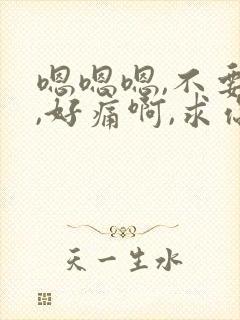 嗯嗯嗯,不要
,好痛啊,求
天一生水